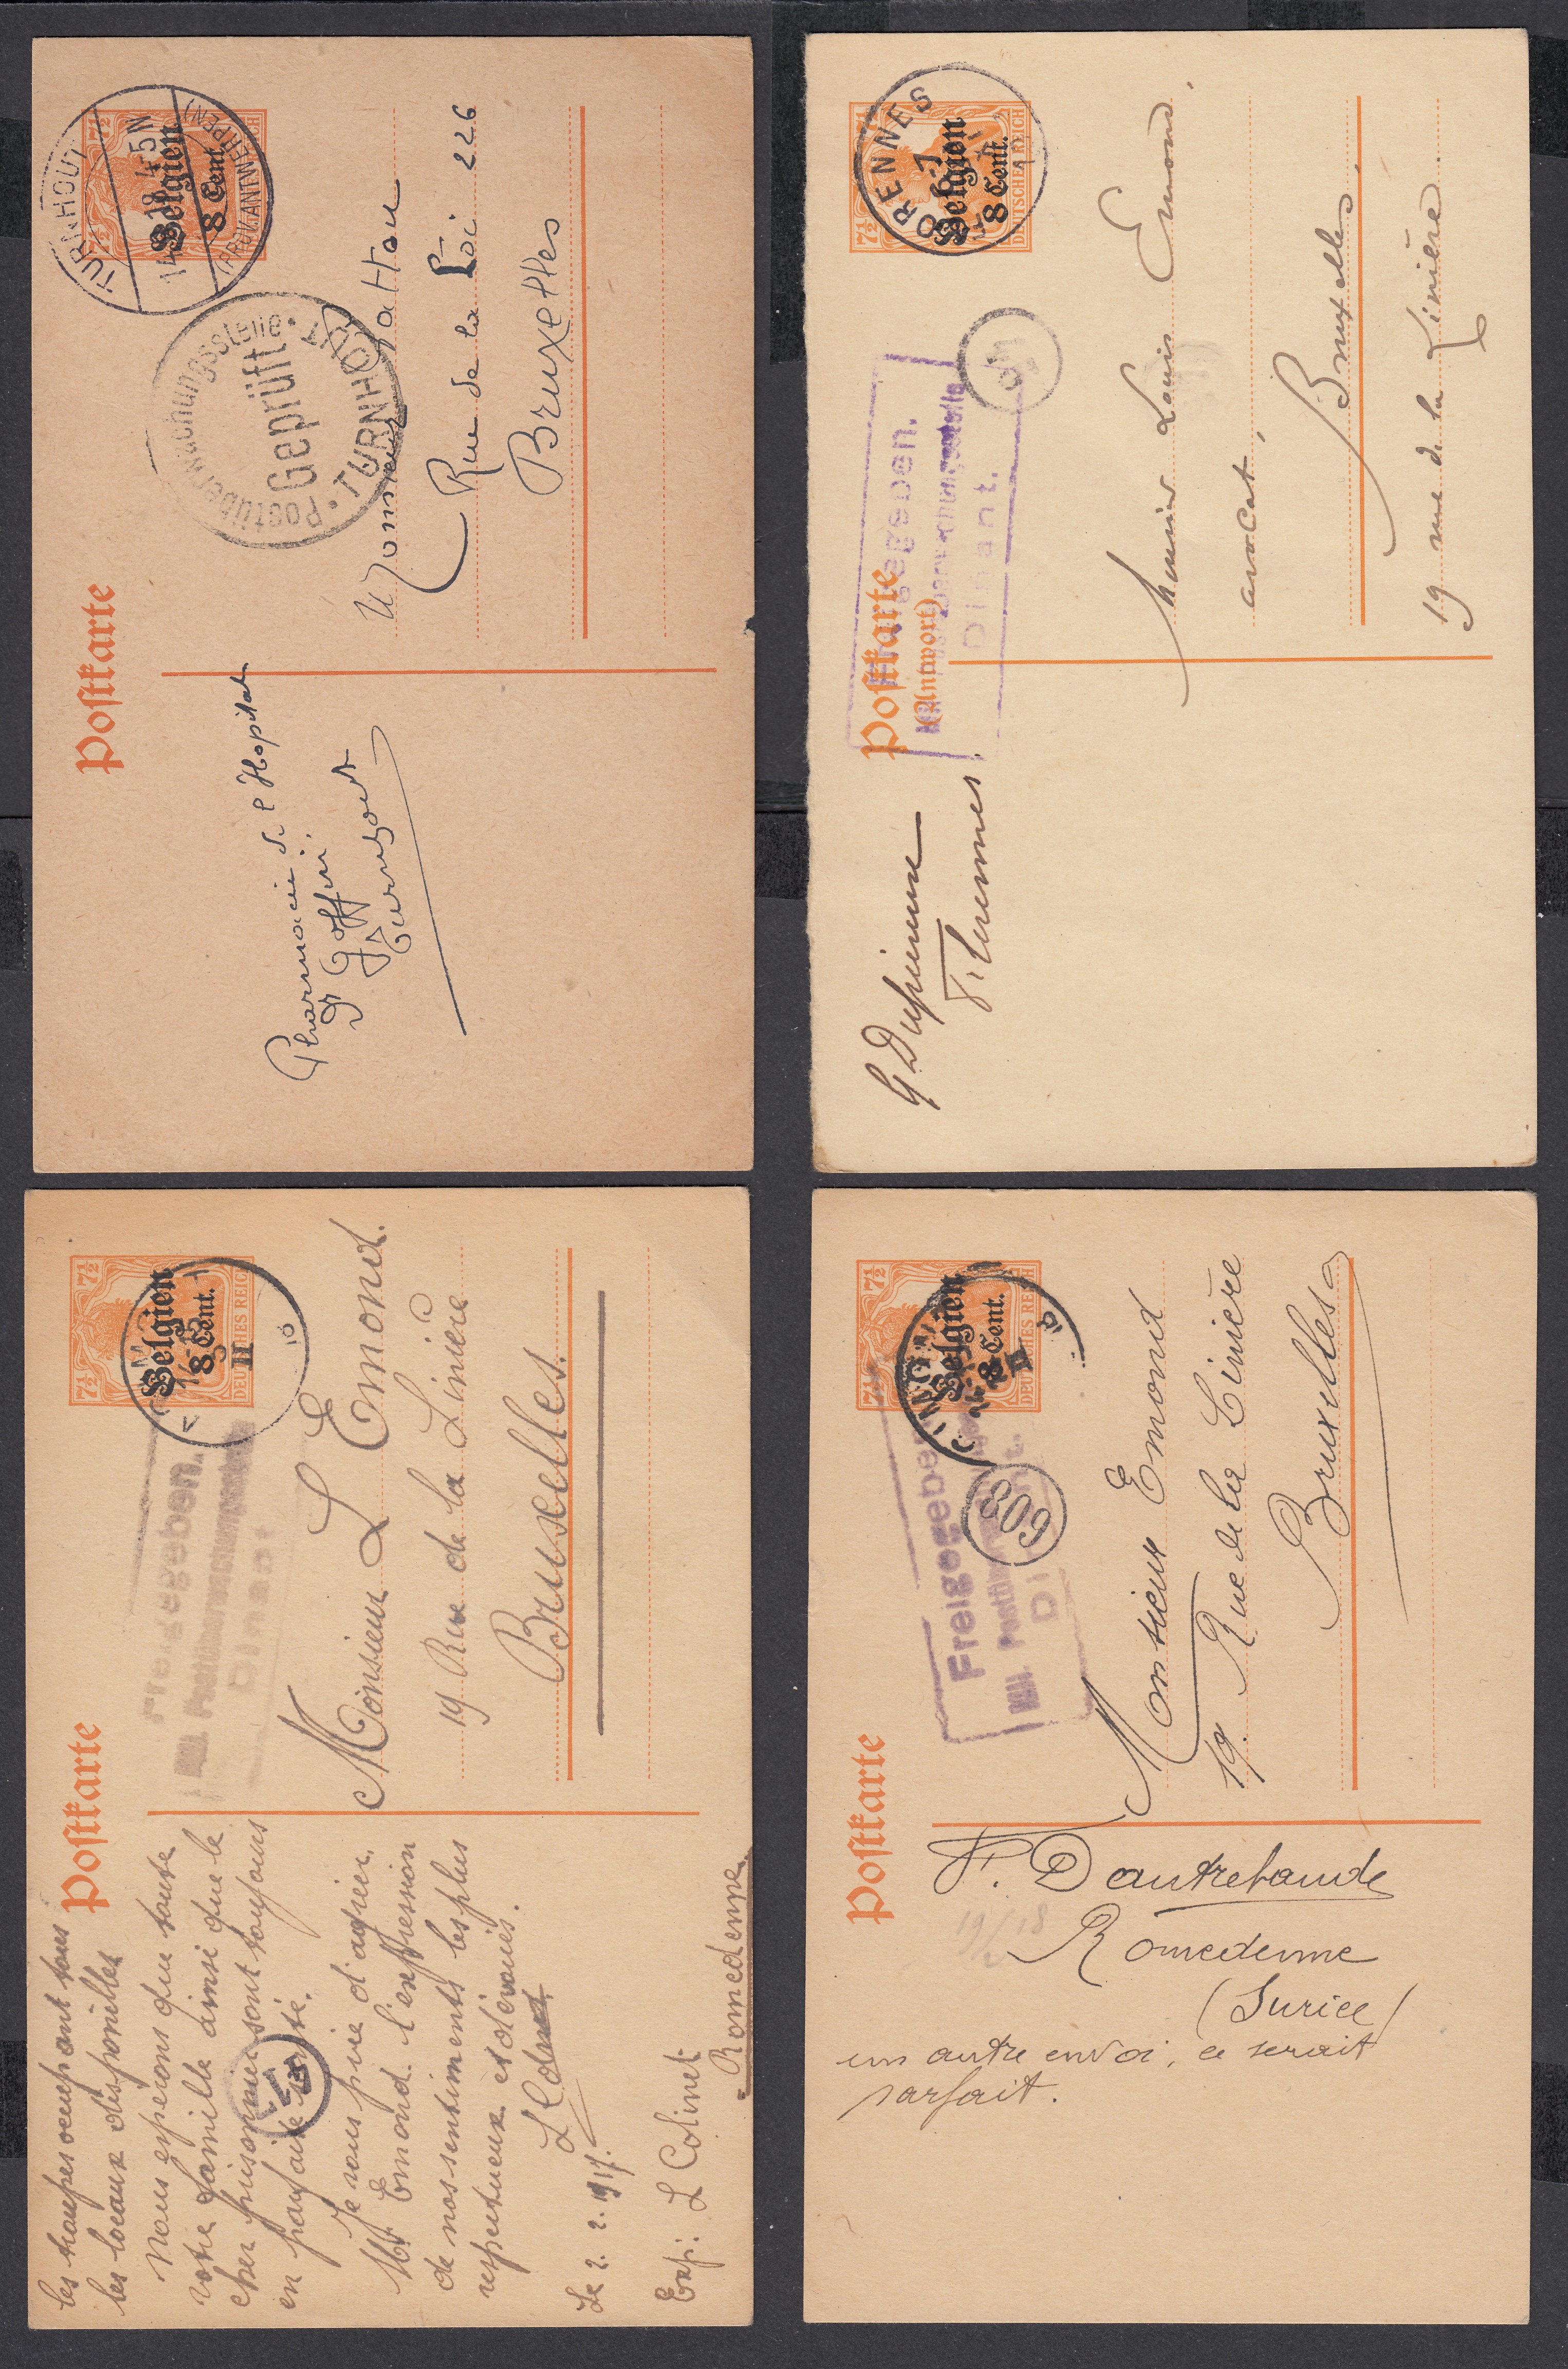 Postkarte
TURNHOUT
(PROV. ANTWERPEN)
7½ 7½
Belgien
8 Cent.
Postüberwachungsstelle
Geprüft
TURNHOUT
Pharmacie de l'Hopital
Goffin
Turnhout
Monsieur
Rue de la Loi 226
Bruxelles
Postkarte
(Antwort)
ORENNES
7½
Belgien
8 Cent.
DEUTSCHES REICH
Freigegeben.
Mil. Postüberwachungsstelle
Dinant.
Monsieur Louis Emond,
avocat,
Bruxelles,
19 rue de la Linière
Postkarte
7½ 7½
Belgien
8 Cent.
DEUTSCHES REICH
Freigegeben.
Mil. Postüberwachungsstelle
Dinant.
les troupes occupant tous
les locaux disponibles
Nous espérons que toute
votre famille ainsi que le
cher prisonnier sont toujours
en parfaite santé.
Je vous prie d'agréer,
Mr. Emond l'expression
de nos sentiments les plus
respectueux et dévoués.
L Colinet
Le 2. 2. 1917.
Exp: L Colinet
Romedenne.
Monsieur L Emond.
19 Rue de la Linière
Bruxelles.
Postkarte
7½ 7½
Belgien
8 Cent.
DEUTSCHES REICH
Freigegeben
Mil. Postüberwachungsstelle
Dinant.
609
F. Dautrebande
19/2 18
Romedenne
(Surice)
un autre envoi, ce serait
parfait.
Monsieur Emond
19. Rue de la Linière
Bruxelles